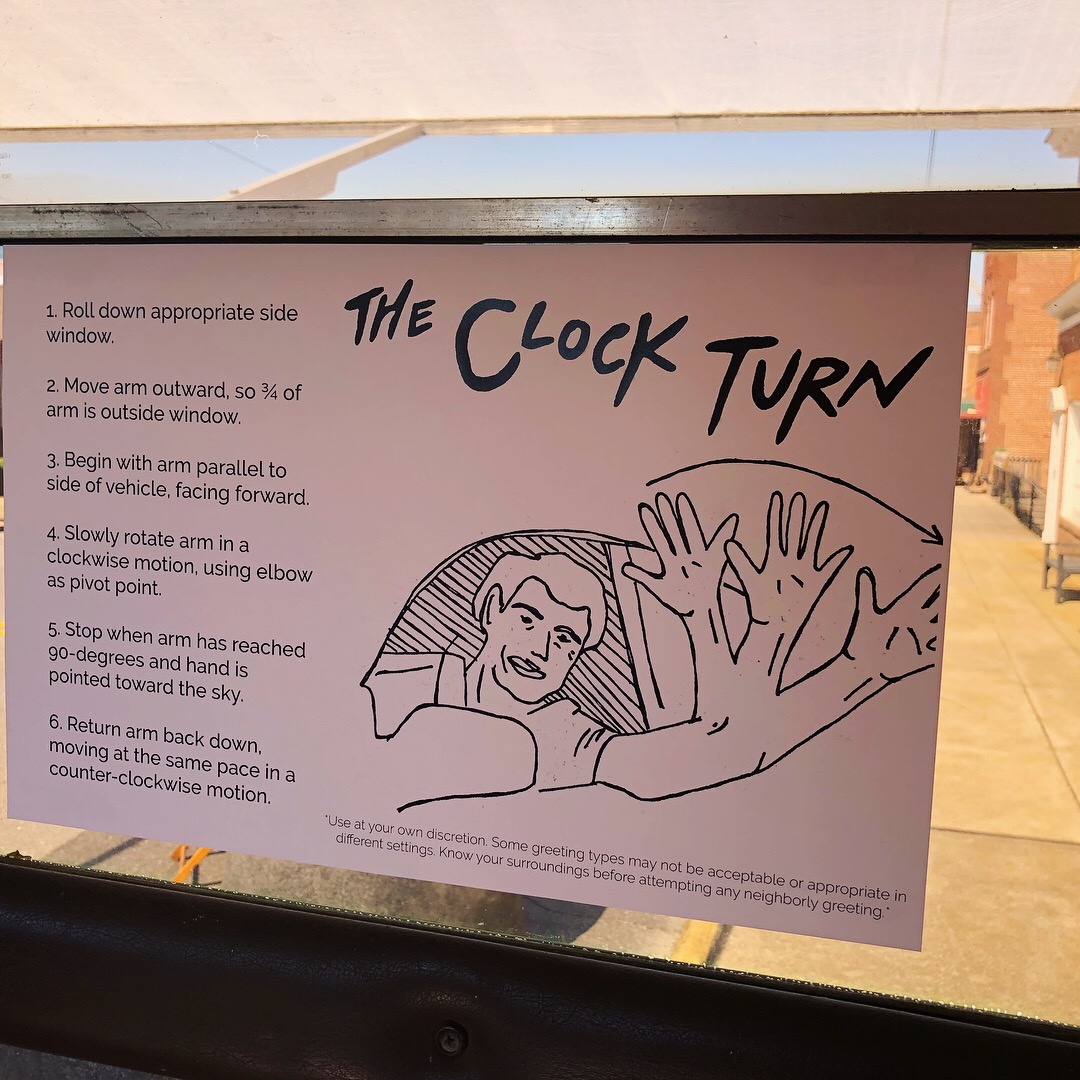 THE CLOCK TURN
1. Roll down appropriate side
window.
2. Move arm outward, so ¾ of
arm is outside window.
3. Begin with arm parallel to
side of vehicle, facing forward.
4. Slowly rotate arm in a
clockwise motion, using elbow
as pivot point.
5. Stop when arm has reached
90-degrees and hand is
pointed toward the sky.
6. Return arm back down,
moving at the same pace in a
counter-clockwise motion.
*Use at your own discretion. Some greeting types may not be acceptable or appropriate in
different settings. Know your surroundings before attempting any neighborly greeting.*